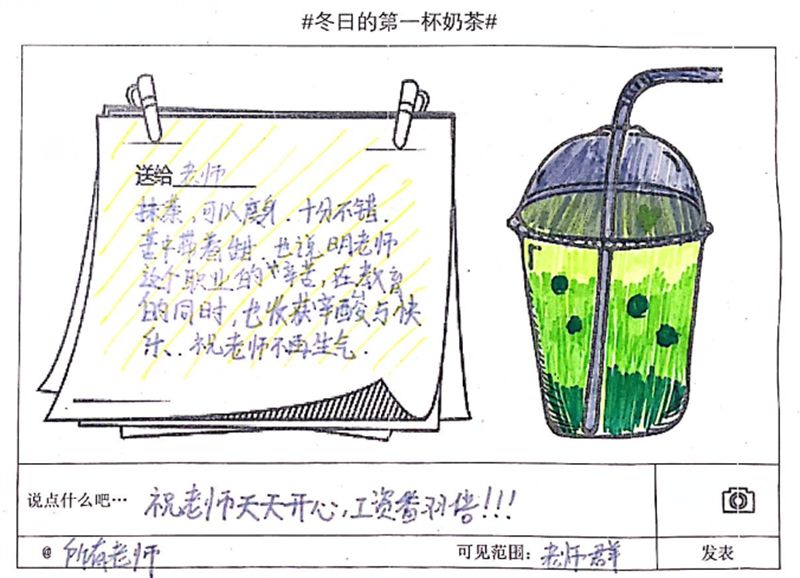 #冬日的第一杯奶茶#
送给 老师
抹茶,可以瘦身.十分不错.
苦中带着甜.也说明老师
这个职业的"辛苦,在教育
的同时,也收获辛酸与快
乐、.祝老师不再生气.
说点什么吧… 祝老师天天开心,工资番羽倍!!!
@ 所有老师 可见范围: 老师群 发表